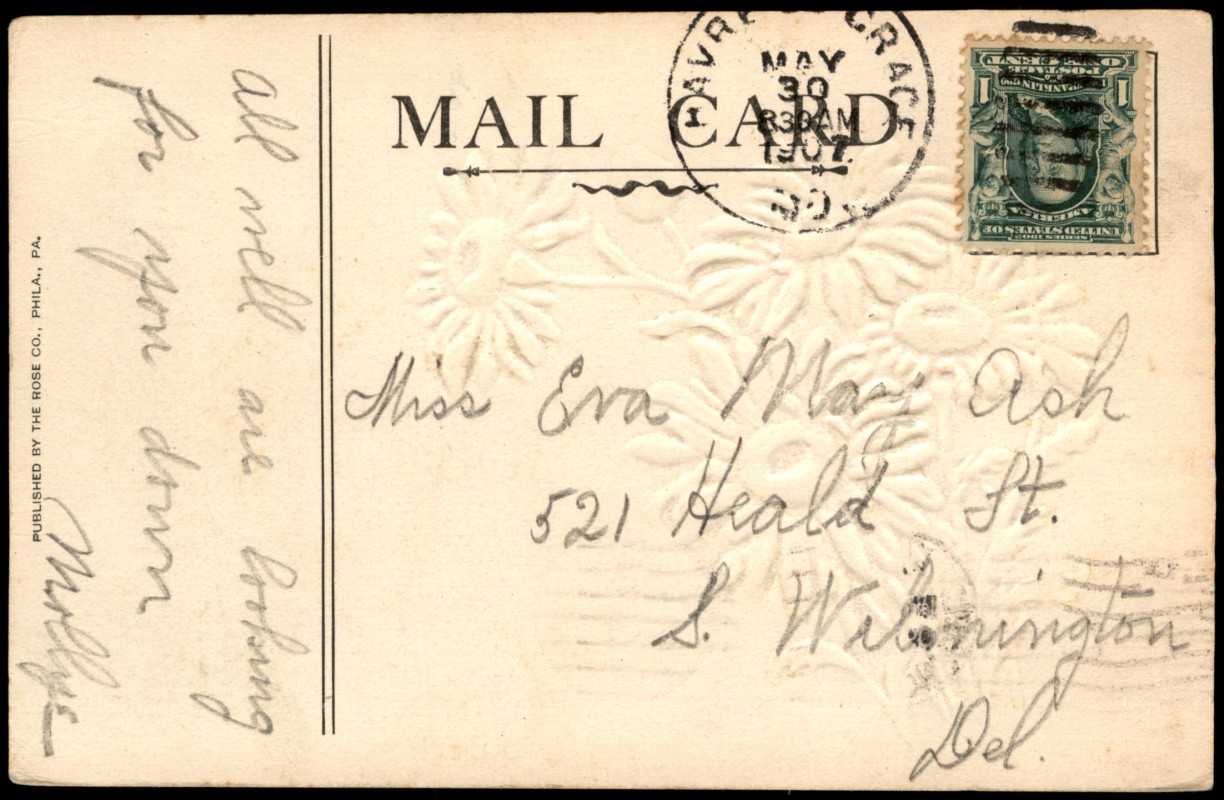 MAIL CARD
HAVRE DE GRACE
MAY
30
830AM
1907
MD.
ONE CENT
POSTAGE
FRANKLIN
1 1
AMERICA
UNITED STATES OF
SERIES 1902
all well are looking
for you down
Mollye
PUBLISHED BY THE ROSE CO., PHILA., PA.
Miss Eva May Ash
521 Heald St.
S. Wilmington
Del.